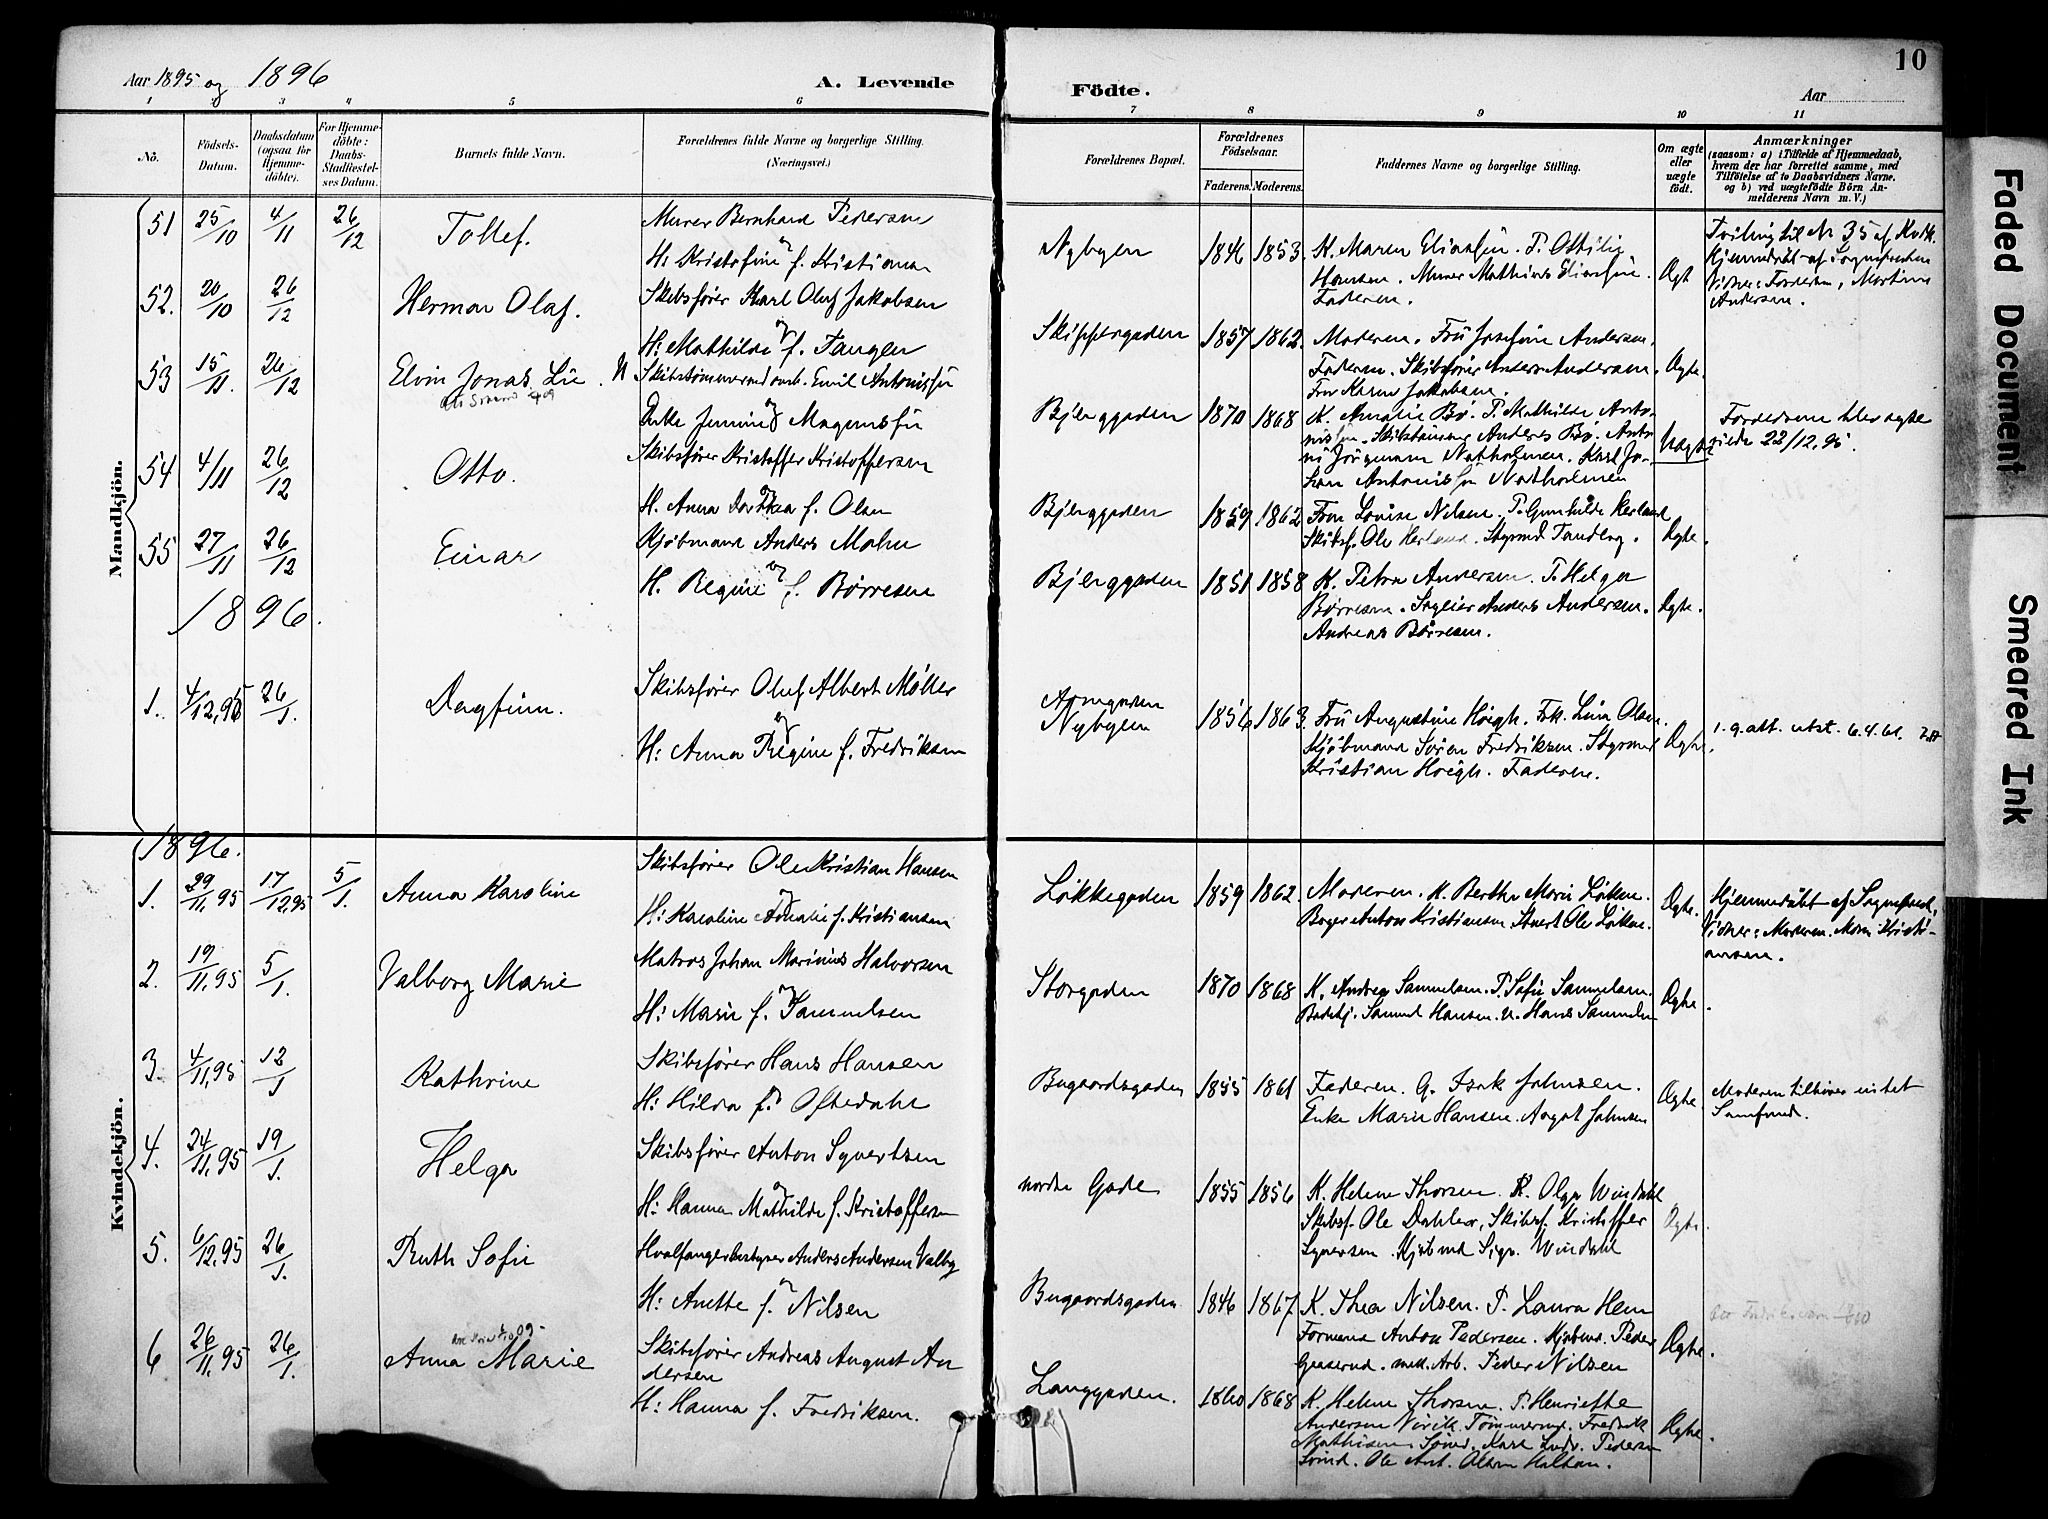 Aar 1895 og 1896
A. Levende
Födte.
Aar
10
1 2 3 4 5 6 7 8 9 10 11
No.
Födsels-
Datum.
Daabsdatum
(ogsaa for
Hjemme-
döbte).
For Hjemme-
döbte:
Daabs-
Stadfæstel-
ses Datum.
Barnets fulde Navn.
Forældrenes fulde Navne og borgerlige Stilling.
(Næringsvei.)
Forældrenes Bopæl.
Forældrenes
Födselsaar.
Faderens. Moderens.
Faddernes Navne og borgerlige Stilling.
Om ægte
eller
uægte
födt.
Anmærkninger
(saasom: a) i Tilfælde af Hjemmedaab,
hvem der har forrettet samme, med
Tilföielse af to Daabsvidners Navne.
og b) ved uægtefödte Börn An-
melderens Navn m. V.)
Mandkjön.
51 25/10 4/11 26/12 Tollef.
Murer Bernhard Pedersen
og
H: Kristofine f. Kristiansen
Nybyen 1846 1853
K. Maren Eliassen. P. Ottilie
Hansen. Murer Mathias Eliassen.
Faderen.
Ægt
Tviling til Nr 35 af Kvdk.
Hjemmedøbt af Sognepresten
Vidner: Forældrene, Martine
Andersen.
52. 20/10 26/12 Herman Olaf.
Skibsfører Karl Oluf Jakobsen
og
H: Mathilde f. Tangen
Skippergaden 1857 1862
Moderen. Fru Josefine Andersen.
Faderen. Skibsfører Anders Andersen.
Fru Karen Jakobsen.
Ægte.
53 15/11. 26/12 Elvin Jonas Lie. N
Skibstømmermand ombord Emil Antonissen
og
Enke Jennine Magnussen
Bjerggaden 1870 1868
K. Amalie Bø. P. Mathilde Anto-
nissen. Skibstømmer Anders Bø. Anto-
ni Jørgensen Natholmen. Karl Jo-
han Antonissen Natholmen
Uægte
Forældrene blev ægte-
viede 22/12.95.
54 4/11 26/12 Otto.
Skibsfører Kristoffer Kristoffersen
og
H. Anna Dorthea f. Olsen
Bjerggaden 1859 1862
Fru Lovise Nilsen. P. Gunhilde Herland
Skibsf. Ole Herland. Styrmd Tandberg.
Ægte.
55 27/11 26/12 Einar
Kjøbmand Anders Mohn
og
H. Regine f. Børresen
Bjerggaden 1851 1858
K. Petra Andersen. P. Helga
Børresen. Andreas Andersen.
Andreas Børresen.
Ægte.
1896.
1. 4/12,95 26/1. Dagfinn.
Skibsfører Oluf Albert Møller
og
H: Anna Regine f. Fredriksen
Nybyen 1856 1863
Fru Augustine Høegh. Frk. Lina Olsen.
Kjøbmand Søren Fredriksen. Styrmd
Kristian Høegh. Faderen.
Ægte.
1. g. att. utst. 6.4.61.
Kvindekjön.
1896.
1. 29/11,95 17/12,95 5/1. Anna Karoline
Skibsfører Ole Kristian Hansen
og
H: Karoline Amalie f. Kristiansen
Løkkegaden 1859 1862
Moderen. K. Berthe Marie Løkken.
Bager Anton Kristiansen. Stuert Ole Løkken.
Ægte.
Hjemmedøbt af Sognepræst,
Vidner: Moderen. Maren Kristi-
ansen.
2. 19/11,95 5/1. Valborg Marie
Matros Johan Marinius Halvorsen
og
H: Marie f. Samuelsen
Storgaden 1870 1868
K. Andrea Samuelsen. P. Sofie Samuelsen.
Samuel Hansen. U. Hans Samuelsen
Ægte.
3. 4/11,95 12/1 Kathrine
Skibsfører Hans Hansen
H: Hilda f. Oftedahl
Bugaardsgaden 1855 1861
Faderen. G. Isak Johnsen.
Enke Marie Hansen. Aagot Johnsen
Ægte.
Moderen tilhører intet
Samfund.
4. 24/11,95 19/1. Helga
Skibsfører Anton Syvertsen
og
H: Hanna Mathilde f. Kristoffersen
nordre Gade 1855 1856
K. Helene Thorsen. K. Olga Windahl
Skibsf. Ole Dahler, Skibsf. Kristoffer
Syversen. Kjøbmd Sigv. Windahl
Ægte.
5. 6/12,95 26/1. Ruth Sofie
Hvalfangerbestyrer Anders Andersen Valby
og
H: Anette f. Nilsen
Bugaardsgaden 1846 1867
K. Thea Nilsen. P. Laura Hem
Formand Anton Pedersen. Kjøbmd. Peder
Graserud. Arb. Peder Nilsen
Ægte.
6 26/11,95 26/1. Anna Marie
Skibsfører Andreas August An
dersen
H: Hanna f. Fredriksen.
Langgaden. 1860 1868
K. Helene Thorsen. P. Henriette
Andersen Virik. Tømmermd. Fredrik
Mathisen Sømd. Karl Ludv. Pedersen
Sømd. Ole Ant. Olsen Haltan.
Ægte.
Faded Document
Smeared Ink